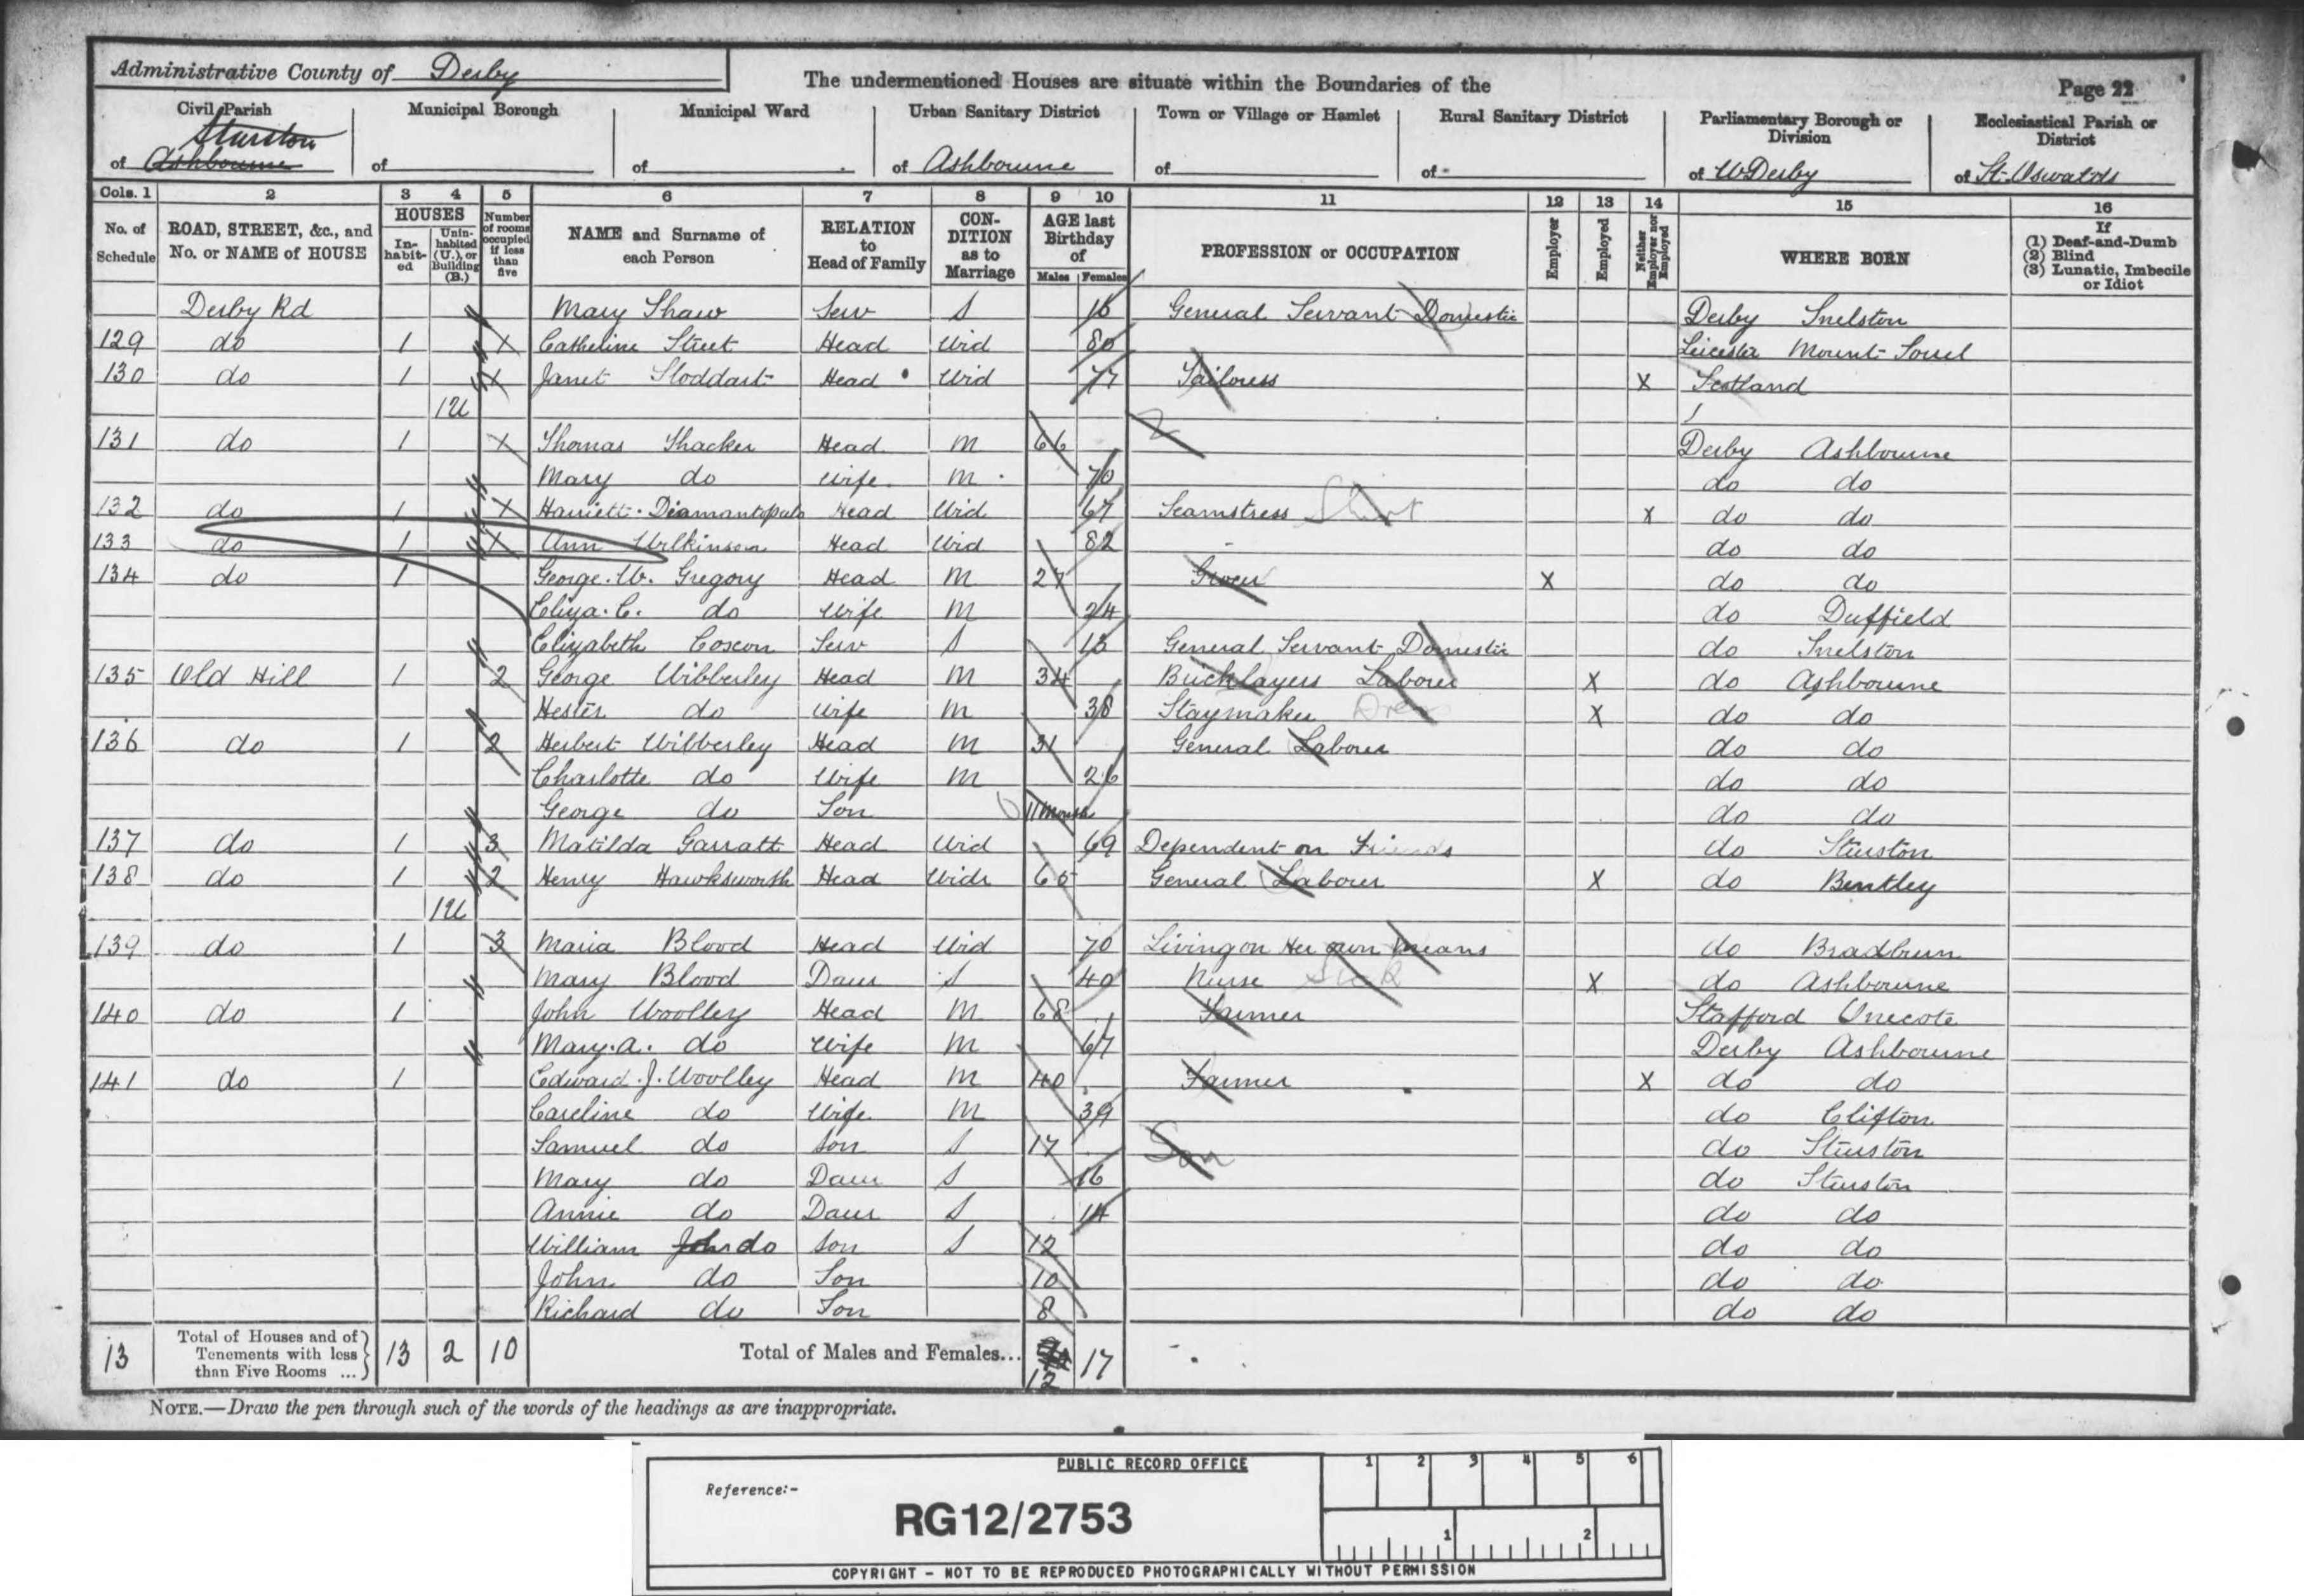 Administrative County of Derby
The undermentioned Houses are situate within the Boundaries of the
Page 22
Civil Parish of Ashbourne Sturston
Municipal Borough of
Municipal Ward of
Urban Sanitary District of Ashbourne
Town or Village or Hamlet of
Rural Sanitary District of
Parliamentary Borough or Division of W Derby
Ecclesiastical Parish or District of St. Oswalds
Cols. 1 2 3 4 5 6 7 8 9 10 11 12 13 14 15 16
No. of Schedule
ROAD, STREET, &c., and No. or NAME of HOUSE
HOUSES
In-habit-ed
Unin-habited (U.), or Building (B.)
Number of rooms occupied if less than five
NAME and Surname of each Person
RELATION to Head of Family
CON-DITION as to Marriage
AGE last Birthday of
Males Females
PROFESSION or OCCUPATION
Employer
Employed
Neither Employer nor Employed
WHERE BORN
If
(1) Deaf-and-Dumb
(2) Blind
(3) Lunatic, Imbecile or Idiot
Derby Rd Mary Shaw Serv S 16 General Servant Domestic Derby Snelston
129 do 1 1 Catheline Street Head Wid 80 Leicester Mount Sorrel
130 do 1 1 Janet Stoddart Head Wid 77 Tailoress X Scotland
1U
131 do 1 1 Thomas Thacker Head M 66 Derby Ashbourne
Mary do Wife M 70 do do
132 do 1 1 Harriett Diamantopulo Head Wid 67 Seamstress Shirt X do do
133 do 1 1 Ann Wilkinson Head Wid 82 do do
134 do 1 George. W. Gregory Head M 27 Grocer X do do
Eliza. C. do Wife M 24 do Duffield
Elizabeth Coxon Serv S 13 General Servant Domestic do Snelston
135 Old Hill 1 2 George Wibberley Head M 34 Bricklayers Laborer X do Ashbourne
Hester do Wife M 38 Staymaker X do do
136 do 1 2 Herbert Wibberley Head M 31 General Laborer do do
Charlotte do Wife M 26 do do
George do Son 11 Months do do
137 do 1 3 Matilda Garratt Head Wid 69 Dependent on Friends do Sturston
138 do 1 2 Henry Hawksworth Head Widr 65 General Laborer X do Bentley
1U
139 do 1 3 Maria Blood Head Wid 70 Living on Her own Means do Bradburn
Mary Blood Daur S 40 Nurse Sick X do Ashbourne
140 do 1 John Woolley Head M 68 Farmer Stafford Onecote
Mary. A. do Wife M 67 Derby Ashbourne
141 do 1 Edward. J. Woolley Head M 40 Farmer X do do
Careline do Wife M 39 do Clifton
Samuel do Son S 17 Son do Sturston
Mary do Daur S 16 do Sturston
Annie do Daur S 14 do do
William John do Son S 12 do do
John do Son 10 do do
Richard do Son 8 do do
13 Total of Houses and of Tenements with less than Five Rooms ... 13 2 10 Total of Males and Females... 12 17
NOTE.—Draw the pen through such of the words of the headings as are inappropriate.
PUBLIC RECORD OFFICE
1 2 3 4 5 6
Reference:-
RG12/2753
1 2
COPYRIGHT - NOT TO BE REPRODUCED PHOTOGRAPHICALLY WITHOUT PERMISSION